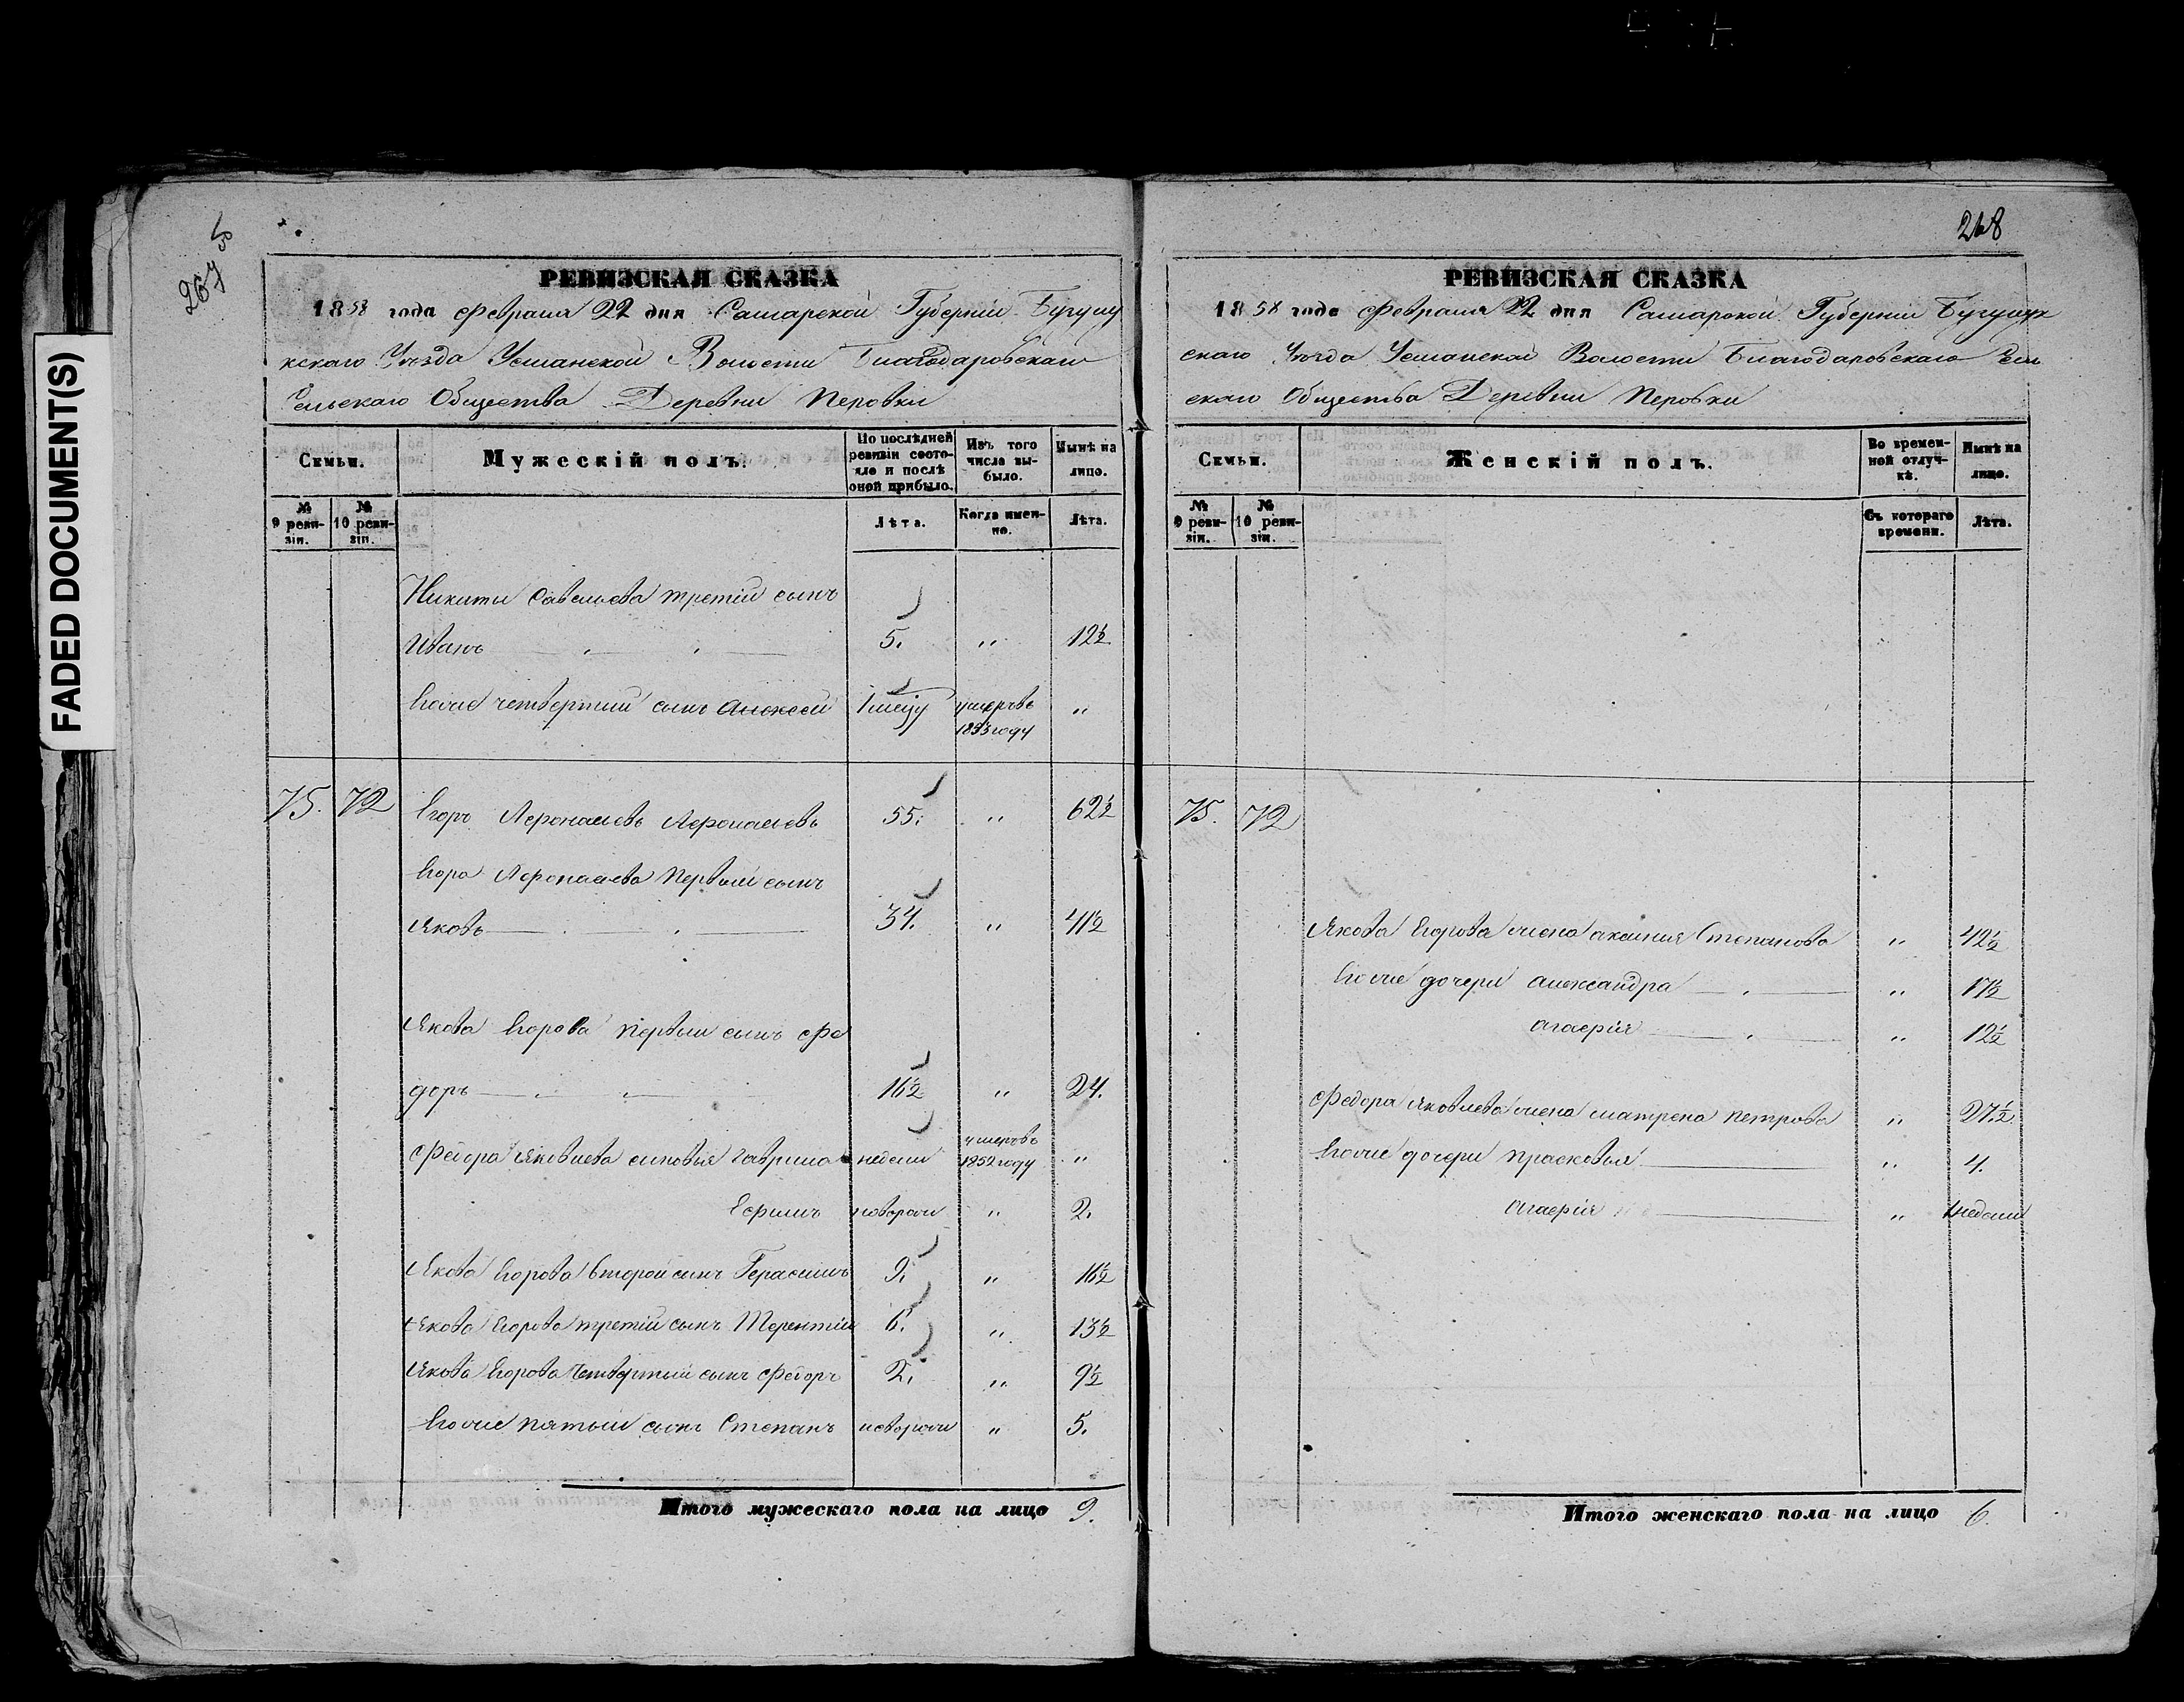 FADED DOCUMENT(S)
267
РЕВИЗСКАЯ СКАЗКА
1858 года Февраля 22 дня Самарской Губернии Бугуру
кскаго Уѣзда Усманской Волости Благодаровскаго
Сельскаго Общества Деревни Перовки
Семьи.
Мужескій полъ.
По послѣдней ревизіи состояло и послѣ оной прибыло.
Изъ того числа выбыло.
Нынѣ на лицо.
№ 9 ревизіи.
№ 10 ревизіи.
Лѣта.
Когда именно.
Лѣта.
Никиты Савельева третій сынъ
Иванъ 5. " 12½
Егоже четвертый сынъ Алексей 1 месяцу умеръ въ 1853 году "
75. 72 Егоръ Афонасьевъ Афонасьевъ 55. " 62½
Егора Афонасьева первый сынъ
Яковъ 34. " 41½
Якова Егорова первый сынъ Фе
доръ 16½ " 24.
Федора Яковлева сыновья Гаврила недели умеръ въ 1852 году "
Ефимъ новорож " 2.
Якова Егорова второй сынъ Герасимъ 9. " 16½
Якова Егорова третій сынъ Терентій 6. " 13½
Якова Егорова четвертый сынъ Федоръ 2. " 9½
Егоже пятый сынъ Степанъ новорож " 5.
Итого мужескаго пола на лицо 9.
268
РЕВИЗСКАЯ СКАЗКА
1858 года Февраля 22 дня Самарской Губернии Бугурук
скаго Уѣзда Усманской Волости Благодаровскаго Сель
скаго Общества Деревни Перовки
Семьи.
Женскій полъ.
Во временной отлучкѣ.
Нынѣ на лицо.
№ 9 ревизіи.
№ 10 ревизіи.
Съ котораго времени.
Лѣта.
75. 72
Якова Егорова жена Аксинья Степанова " 42½
Егоже дочери Александра " 17½
Агафія " 12½
Федора Яковлева жена Матрена Петрова " 27½.
Егоже дочери Прасковья " 4.
Агафія " недели
Итого женскаго пола на лицо 6.